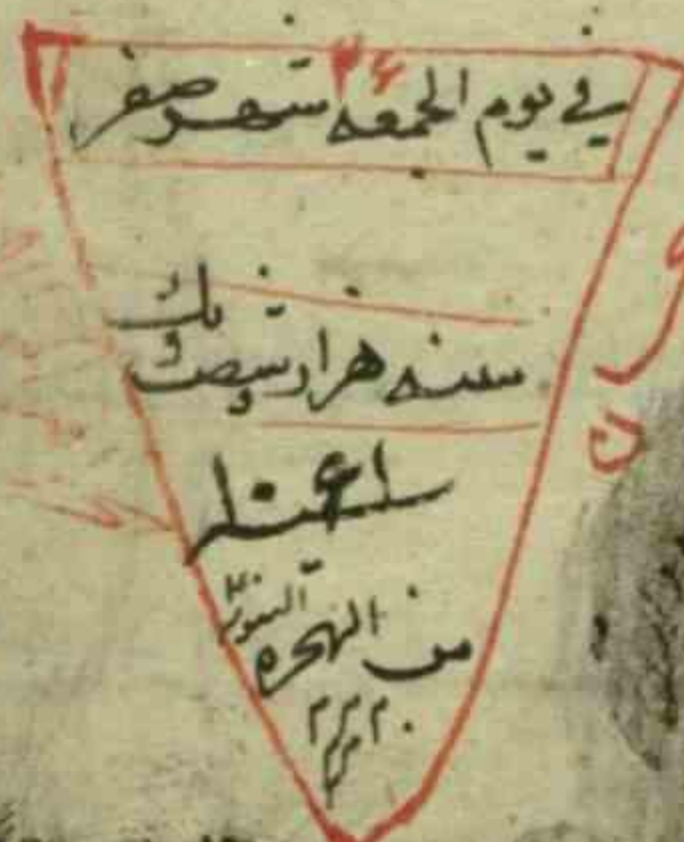 في يوم الجمعه ٢٤ شهر صفر
سنه هزار شصت و يك
من الهجره النبويه